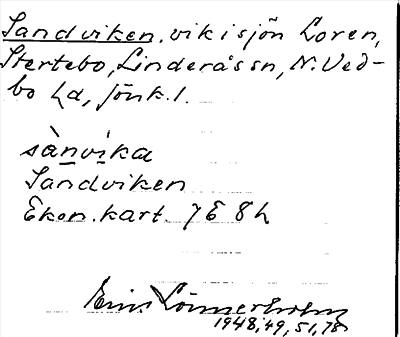 Sandviken, vik i sjön Loren,
Stertebo, Linderås sn, N. Ved-
bo hd, Jönk. l.
sànvika
Sandviken
Ekon. kart. 7E 8h
Einar Lönnerholm
1948, 49, 51, 78